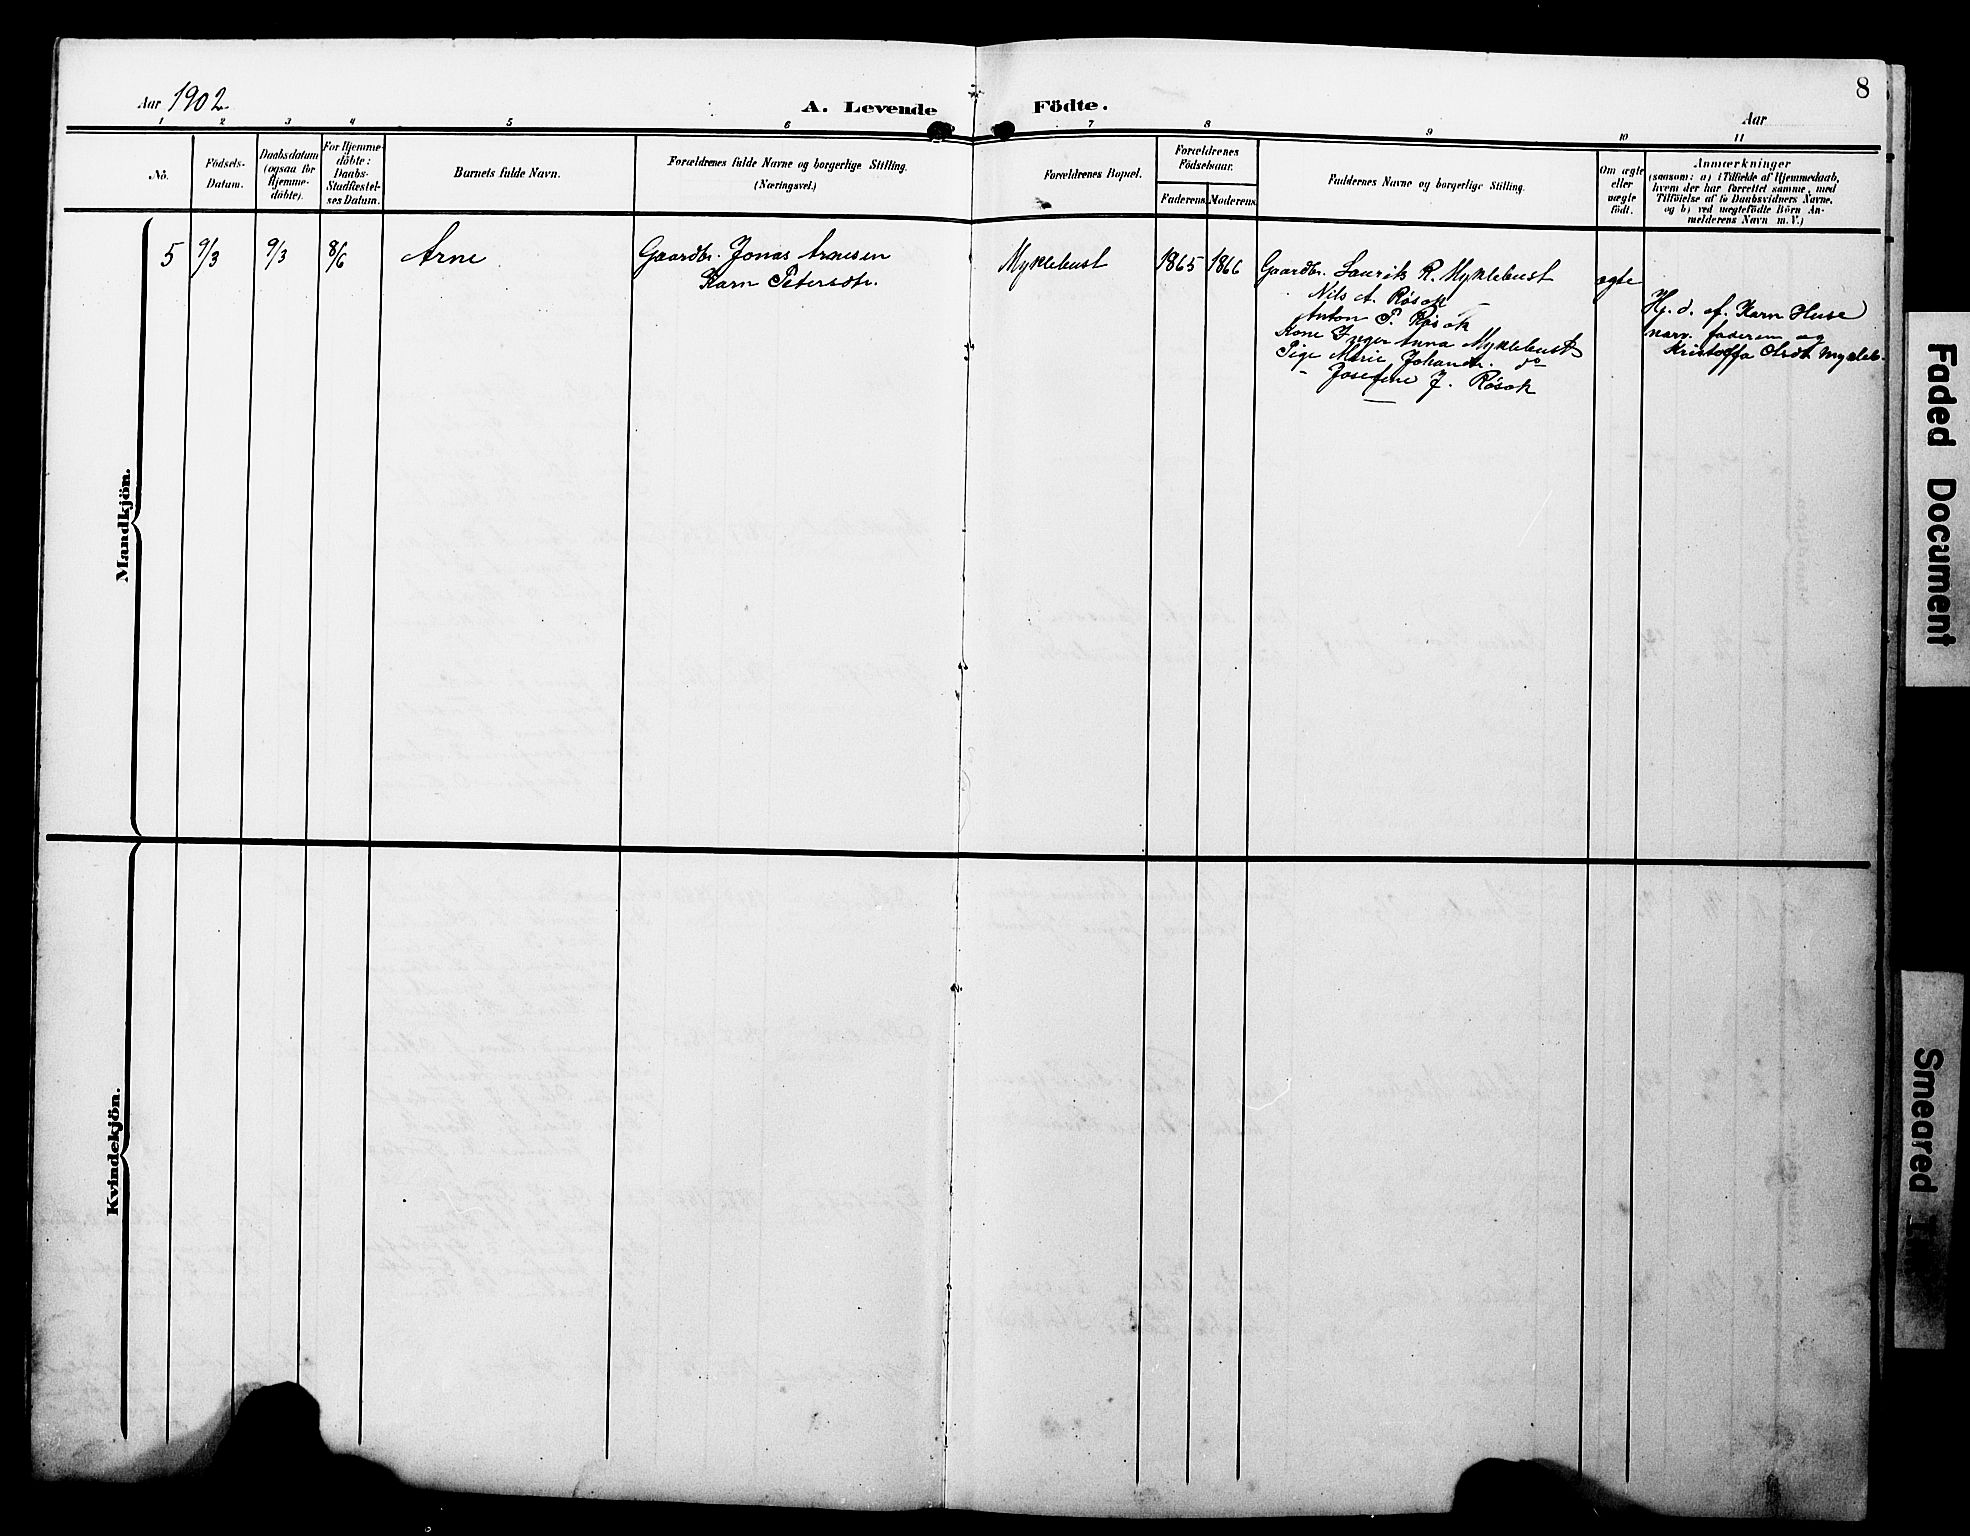 8
Aar 1902
A. Levende Födte.
Aar
1 2 3 4 5 6 7 8 9 10 11
No.
Födsels-
Datum.
Daabsdatum
(ogsaa for
Hjemme-
döbte).
For Hjemme-
döbte:
Daabs-
Stadfæstel-
ses Datum.
Barnets fulde Navn.
Forældrenes fulde Navne og borgerlige Stilling.
(Næringsvei.)
Forældrenes Bopæl.
Forældrenes
Födselsaar.
Faderens. Moderens.
Faddernes Navne og borgerlige Stilling.
Om ægte
eller
uægte
födt.
Anmærkninger
(saasom: a) i Tilfælde af Hjemmedaab,
hvem der har forrettet samme, med
Tilföielse af to Daabsvidners Navne,
og b) ved uægtefödte Börn An-
melderens Navn m. V.)
Mandkjön.
5 9/3 9/3 8/6 Arne
Gaardbr. Jonas Arnesen
Karn Petersdtr.
Myklebust
1865 1866
Gaardbr. Laurits R. Myklebust
Nils A. Røsok
Anton P. Røsok
Kone Inger Anna Myklebust
Pige Marie Johansdtr. do
- Josefine J. Røsok
ægte
Hj. d. af. Karn Huse
narv. faderen og
Kristoffa Olsdt. Mykleb.
Kvindekjön.
Faded Document
Smeared